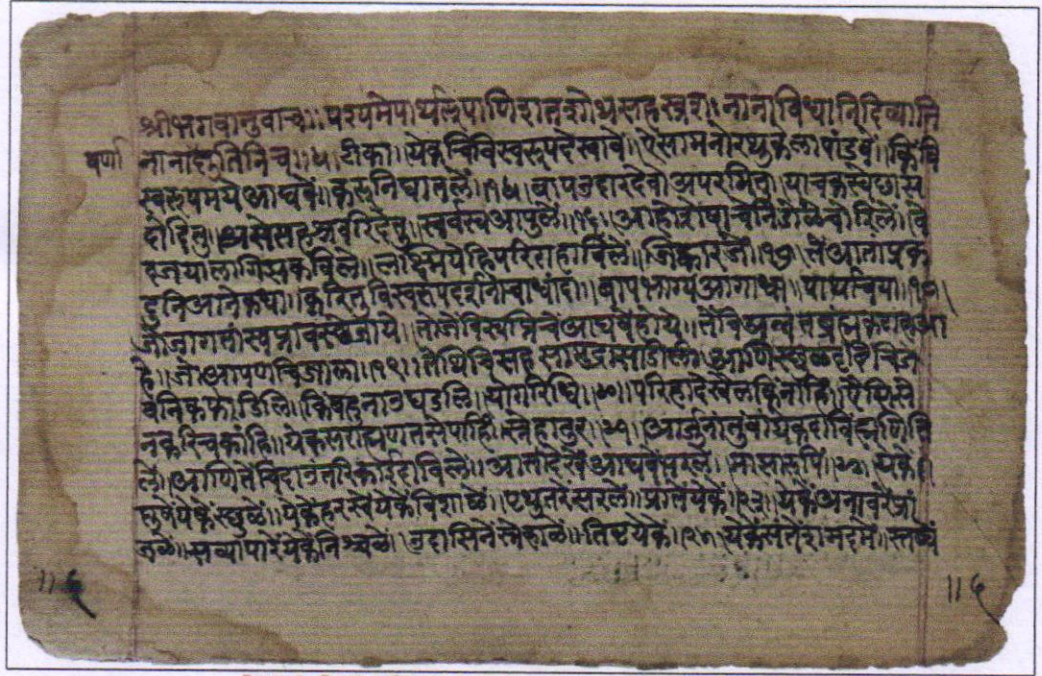 श्रीभगवानुवाच॥ पश्यमेपार्थरूपाणिशतशोथसहस्रशः नानाविधानिदिव्यानि
वर्णा
नानाकृतिनिच॥५॥ टीका॥ येकचिविस्वरूपदेखावे॥ ऐसामनोरथुकेलापांडवें॥ किं
स्वरूपमयेआघवें॥ करूनिघातलें॥ बापउदारदेवोअपरमितु॥ याचकस्वेछासं
दोदितु॥ असेसहस्रवरिदेतु॥ सर्वस्वआपुलें॥ आहोशेषाचेनिडोळेचोरिलें॥ वे
दजयालागिसकविलें॥ लक्ष्मियेहिपरिराहाविलें॥ जिव्हारजें॥१७॥ तेंआतांप्रक
टुनिआनेकधा॥ करितुविस्वरूपदर्शनाचाधांदा॥ बापभाग्यआगाधा॥ पार्थाचिया॥
जोजागतांस्वप्नावस्थेजाये॥ तोजेविस्वप्निचेंआघवेंहोये॥ तेंविअनंतब्रंह्मकटाहआ
हे॥ जोआपणचिजाला॥१९॥ तेथिचिसहसामुद्रासांडिली॥ आणिस्थुळदृष्टिचिज
वनिकफाडिलि॥ किंबहुनाउघडलि॥ योगरिधि॥ परिहादेखैलकिंनाहिं॥ ऐसिसे
नकरिचिकांहि॥ येकसरांह्मणतसेपाहिं॥ स्नेहातुर॥ आर्जुनातुंवांयेकदाविंह्मणित
लें॥ आणितेंचिदाउंतरिकाईदाविलें॥ आतांदेखेंआघवेंभरलें॥ माझांरूपिं॥ येकें
स्थुळें॥ येकेंहरस्वेंयेकेंविशाळें॥ पृथुतरेंसरळें॥ प्रांतेंयेकें॥ येकेंअनावरेंप्रां
जळें॥ सव्यापारेंयेकेंनिश्चळें॥ उदासिनेंस्नेहाळें॥ तिव्रेंयेकें॥ येकें
॥६
॥६